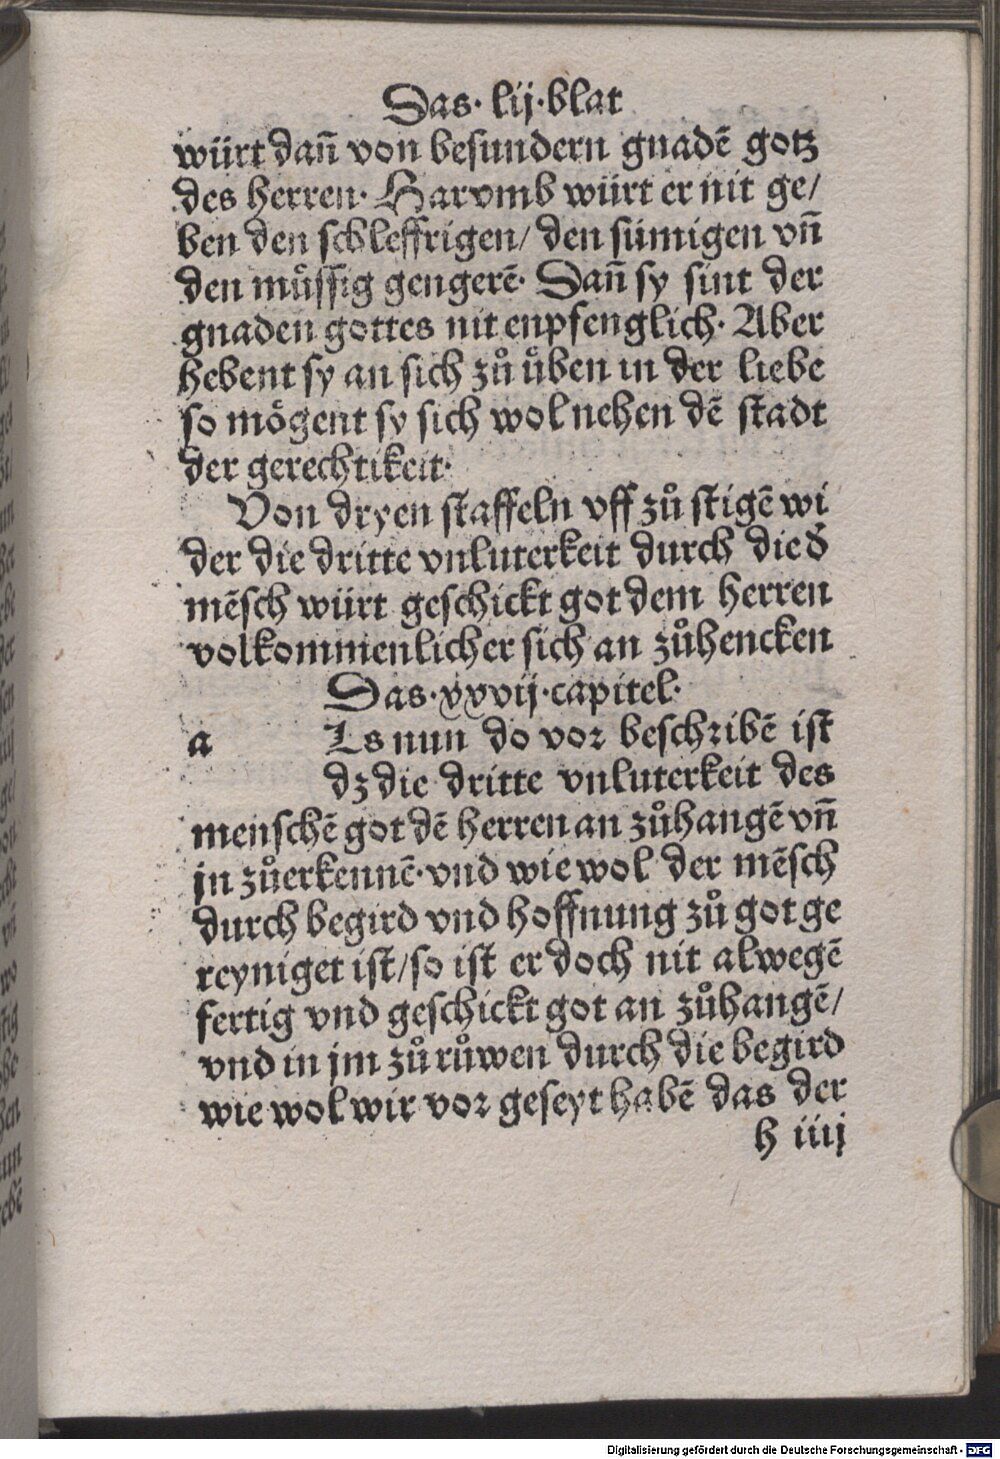 Das· lij·blat
würt dañ von besundern gnadẽ gotz
des herren· Harvmb würt er nit ge/
ben den schleffrigen/ den sümigen vñ
den mu̇ssig gengerẽ· Dañ sy sint der
gnaden gottes nit enpfenglich· Aber
hebent sy an sich zů üben in der liebe
so mögent sy sich wol nehen dẽ stadt
der gerechtikeit·
Von dryen staffeln vff zů stigẽ wi
der die dritte vnluterkeit durch die đ
mẽsch würt geschickt got dem herren
volkommenlicher sich an zůhencken
Das·xxvij·capitel·
a Ls nun do vor beschribẽ ist
dz die dritte vnluterkeit des
menschẽ got dẽ herren an zůhangẽ vñ
jn zůerkennẽ·vnd wie wol der mẽsch
durch begird vnd hoffnung zů got ge
reyniget ist/so ist er doch nit alwegẽ
fertig vnd geschickt got an zůhangẽ/
vnd in jm zů růwen durch die begird
wie wol wir vor geseyt habẽ das der
h iiij
Digitalisierung gefördert durch die Deutsche Forschungsgemeinschaft - DFG